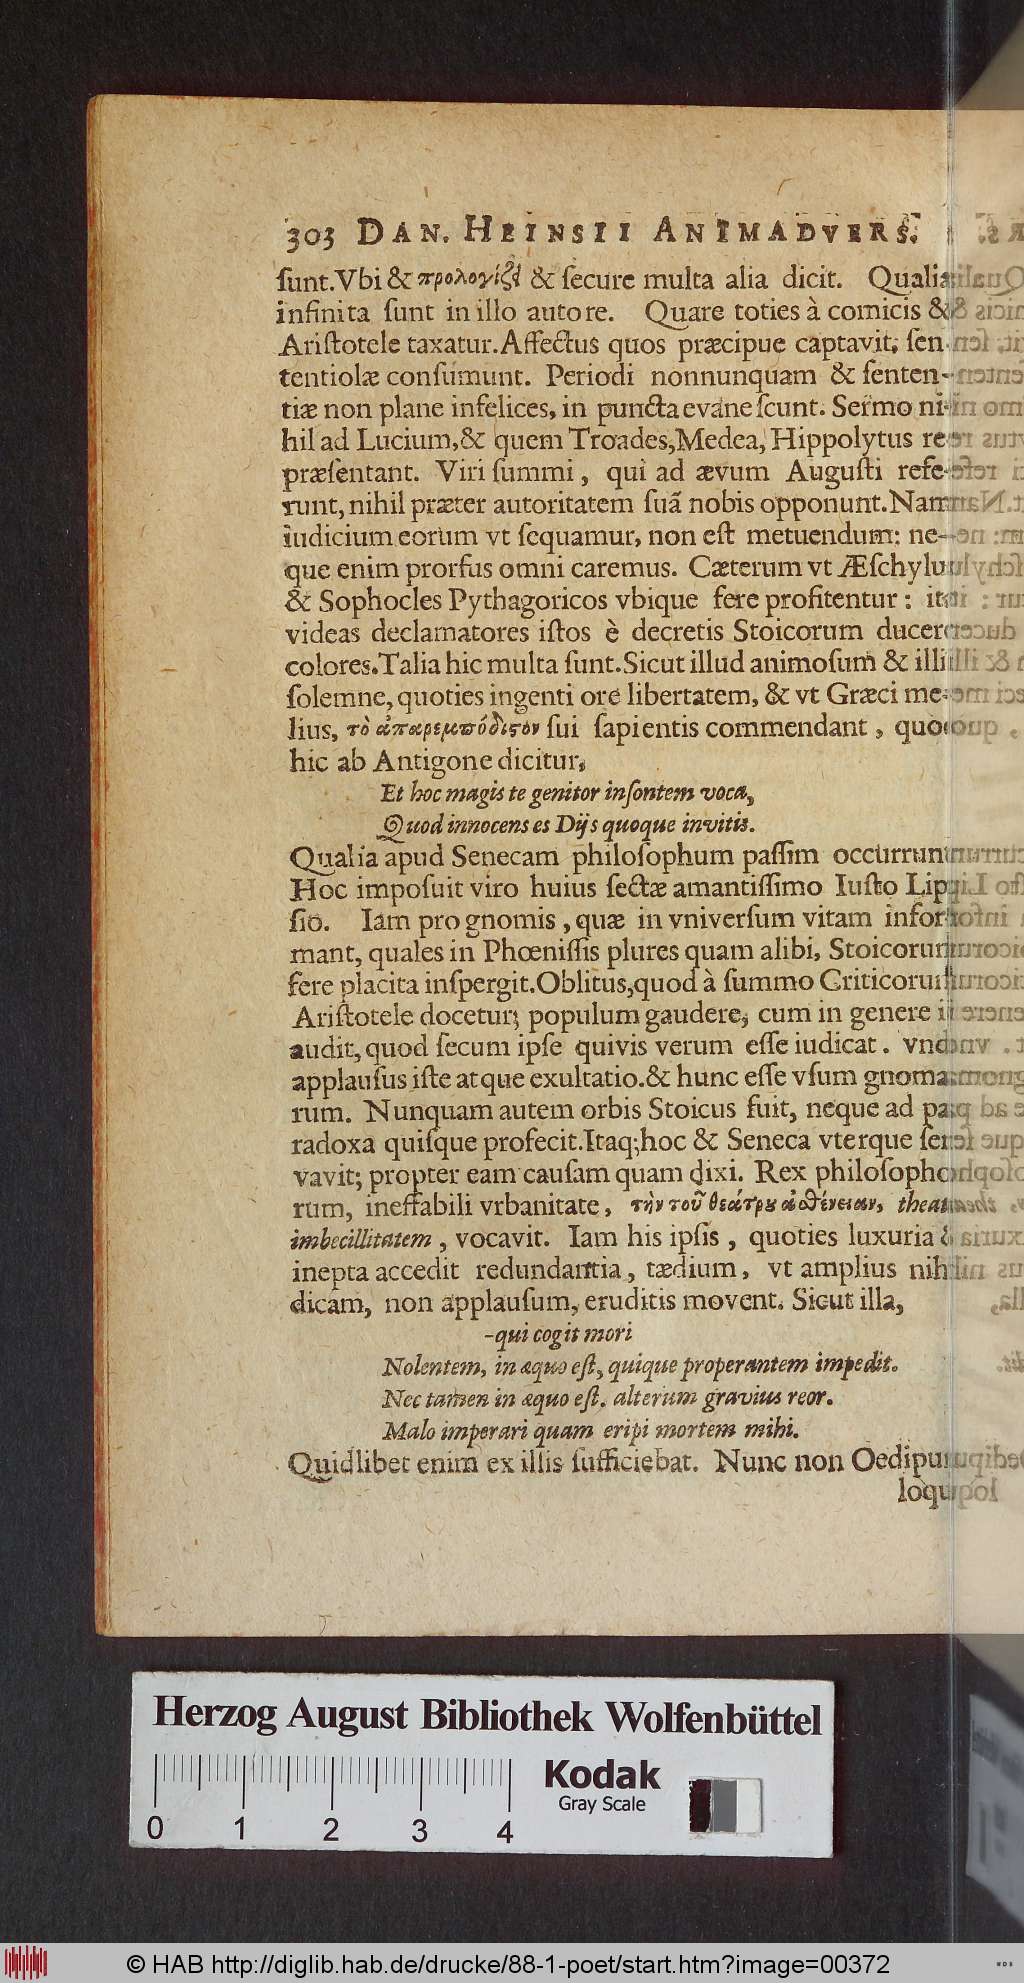 303 DAN. HEINSII ANIMADVERS.
ſunt. Vbi & προλογίζει & ſecure multa alia dicit. Qualia
infinita ſunt in illo autore. Quare toties à comicis &
Ariſtotele taxatur. Affectus quos præcipue captavit, ſen-
tentiolæ conſumunt. Periodi nonnunquam & ſenten-
tiæ non plane infelices, in puncta evaneſcunt. Sermo ni-
hil ad Lucium, & quem Troades, Medea, Hippolytus re
præſentant. Viri ſummi, qui ad ævum Auguſti refe-
runt, nihil præter autoritatem ſuã nobis opponunt. Nam
iudicium eorum vt ſequamur, non eſt metuendum: ne-
que enim prorſus omni caremus. Cæterum vt Æſchylu
& Sophocles Pythagoricos vbique fere profitentur: ita
videas declamatores iſtos è decretis Stoicorum ducere
colores. Talia hic multa ſunt. Sicut illud animoſum & illi
ſolemne, quoties ingenti ore libertatem, & vt Græci me-
lius, τὸ ἀπαρεμπόδιϛον ſui ſapientis commendant, quo
hic ab Antigone dicitur,
Et hoc magis te genitor inſontem voca,
Quod innocens es Dijs quoque invitis.
Qualia apud Senecam philoſophum paſſim occurrunt
Hoc impoſuit viro huius ſectæ amantiſſimo Iuſto Lip
ſio. Iam pro gnomis, quæ in vniverſum vitam infor
mant, quales in Phœniſſis plures quam alibi, Stoicorum
fere placita inſpergit. Oblitus, quod à ſummo Criticorum
Ariſtotele docetur; populum gaudere, cum in genere i
audit, quod ſecum ipſe quivis verum eſſe iudicat. vnde
applauſus iſte atque exultatio. & hunc eſſe vſum gnoma
rum. Nunquam autem orbis Stoicus fuit, neque ad pa
radoxa quiſque profecit. Itaq; hoc & Seneca vterque ſer
vavit; propter eam cauſam quam dixi. Rex philoſopho
rum, ineffabili vrbanitate, τὴν τοῦ θεάτρȣ ἀσθένειαν, theatri
imbecillitatem, vocavit. Iam his ipſis, quoties luxuria &
inepta accedit redundantia, tædium, vt amplius nihil
dicam, non applauſum, eruditis movent. Sicut illa,
-qui cogit mori
Nolentem, in æquo eſt, quique properantem impedit.
Nec tamen in æquo eſt. alterum gravius reor.
Malo imperari quam eripi mortem mihi.
Quidlibet enim ex illis ſufficiebat. Nunc non Oedipum
loqu
Herzog August Bibliothek Wolfenbüttel
0 1 2 3 4
Kodak
Gray Scale
© HAB http://diglib.hab.de/drucke/88-1-poet/start.htm?image=00372